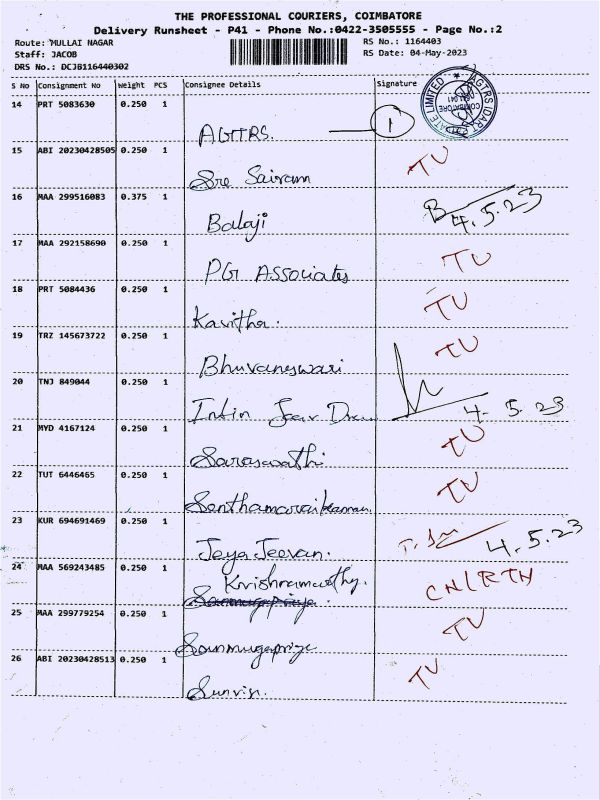 THE PROFESSIONAL COURIERS, COIMBATORE
Delivery Runsheet - P41 - Phone No.:0422-3505555 - Page No.:2
Route: MULLAI NAGAR
RS No.: 1164403
Staff: JACOB
RS Date: 04-May-2023
DRS No.: DCJB116440302
S No Consignment No Weight PCS Consignee Details Signature
14 PRT 5083630 0.250 1
AGTRS. 1
15 ABI 20230428505 0.250 1
Sre Sairam TU
16 MAA 299516083 0.375 1
Balaji B 4.5.23
17 MAA 292158690 0.250 1
PG ASSociates TU
18 PRT 5084436 0.250 1
Kavitha. TU
19 TRZ 145673722 0.250 1
Bhuvaneswari TU
20 TNJ 849044 0.250 1
4. 5. 23
21 MYD 4167124 0.250 1
Saraswathi TU
22 TUT 6446465 0.250 1
Senthamaraikannan TU
23 KUR 694691469 0.250 1
Jeya Jeevan. 4.5.23
24 MAA 569243485 0.250 1
Krishnamurthy. CN/RTN
25 MAA 299779254 0.250 1
Sanmugapriya TU
26 ABI 20230428513 0.250 1
TU